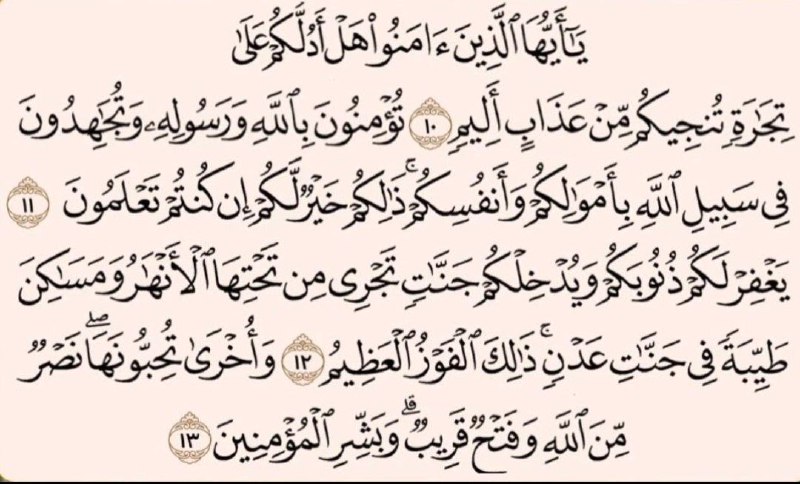 يَـٰٓأَيُّهَا ٱلَّذِينَ ءَامَنُوا۟ هَلْ أَدُلُّكُمْ عَلَىٰ
تِجَـٰرَةٍ تُنجِيكُم مِّنْ عَذَابٍ أَلِيمٍ ١٠ تُؤْمِنُونَ بِٱللَّهِ وَرَسُولِهِۦ وَتُجَـٰهِدُونَ
فِى سَبِيلِ ٱللَّهِ بِأَمْوَٰلِكُمْ وَأَنفُسِكُمْ ۚ ذَٰلِكُمْ خَيْرٌ لَّكُمْ إِن كُنتُمْ تَعْلَمُونَ ١١
يَغْفِرْ لَكُمْ ذُنُوبَكُمْ وَيُدْخِلْكُمْ جَنَّـٰتٍ تَجْرِى مِن تَحْتِهَا ٱلْأَنْهَـٰرُ وَمَسَـٰكِنَ
طَيِّبَةً فِى جَنَّـٰتِ عَدْنٍ ۚ ذَٰلِكَ ٱلْفَوْزُ ٱلْعَظِيمُ ١٢ وَأُخْرَىٰ تُحِبُّونَهَا ۖ نَصْرٌ
مِّنَ ٱللَّهِ وَفَتْحٌ قَرِيبٌ ۗ وَبَشِّرِ ٱلْمُؤْمِنِينَ ١٣